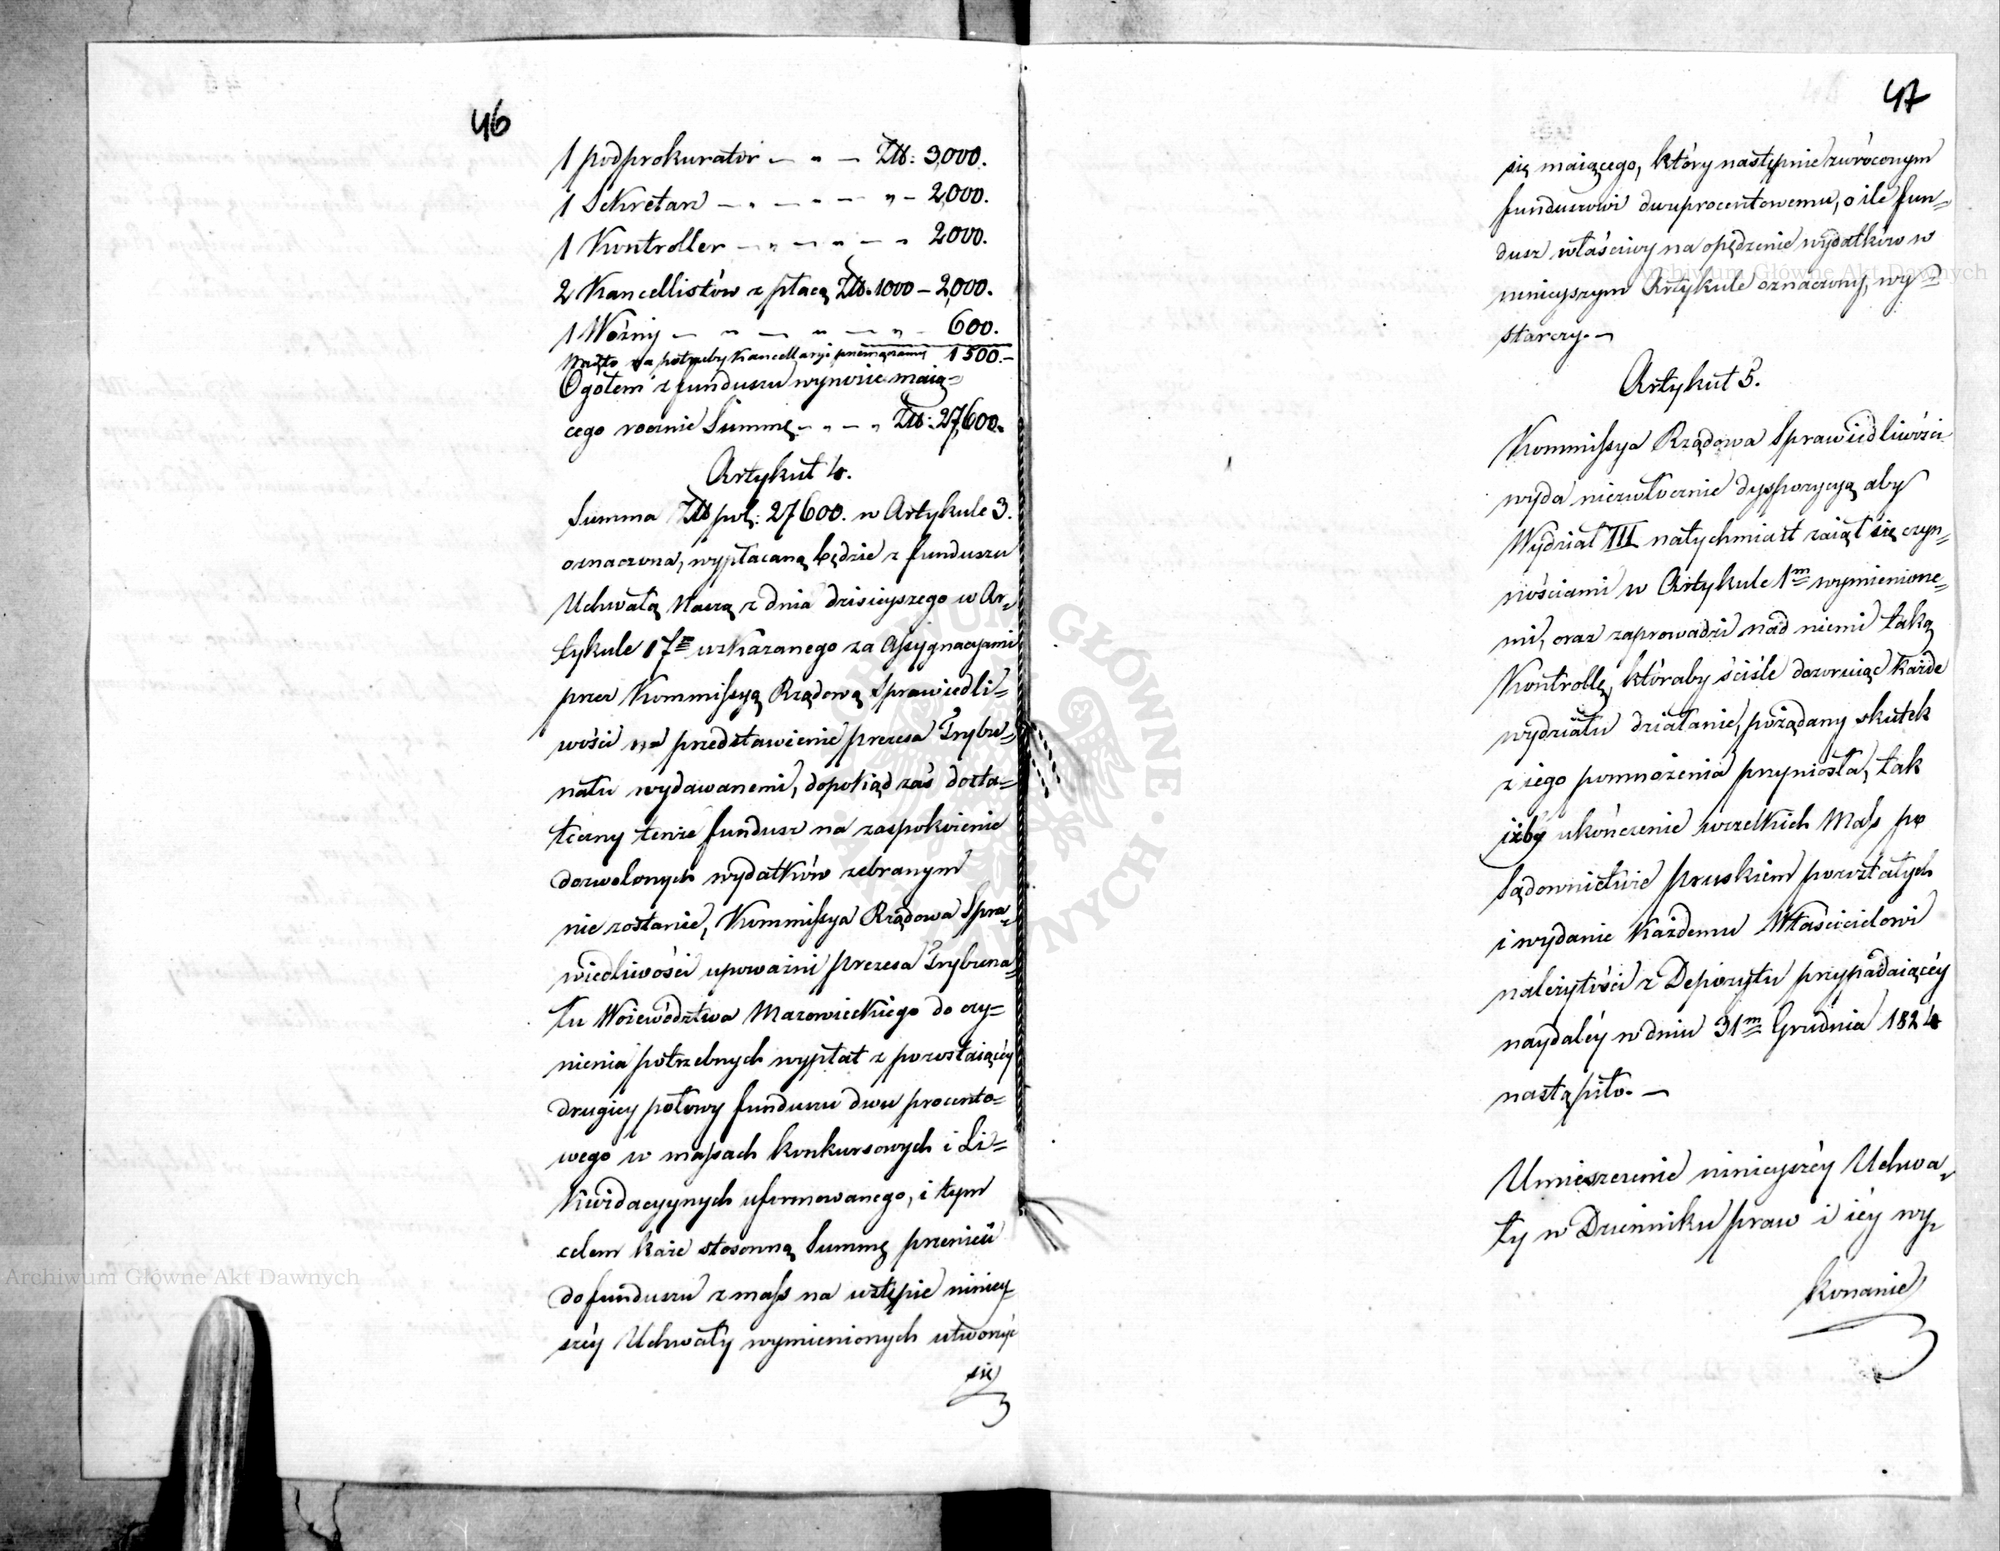 46
1 podprokurator — „ — Złł: 3,000.
1 Sekretarz — „ — — — „ — 2,000.
1 Kontroller — „ — „ — „ 2000.
2 Kancellistów z płacą Złł. 1000 — 2,000.
1 Woźny — „ — „ — „ — 600.
na potrzeby Kancellaryi 1500.—
Ogółem z funduszu wynosić maią=
cego rocznie Summę — „ — „ Złł: 27,600.
Artykuł 4.
Summa Złł pol: 27600. w Artykule 3.
oznaczona, wypłacaną będzie z funduszu
Uchwałą Naszą z dnia dzisieyszego w Ar=
tykule 17m wskazanego za Assygnacyami
przez Kommissyą Rządową Sprawiedli=
wości na przedstawienie prezesa Trybu=
nału wydawanemi, dopokiąd zaś dosta=
teczny tenże fundusz na zaspokoienie
dozwolonych wydatków zebranym
nie zostanie, Kommissya Rządowa Spra=
wiedliwości upoważni prezesa Trybuna=
łu Woiewództwa Mazowieckiego do czy=
nienia potrzebnych wypłat z pozostaiącéy
drugiey połowy funduszu dwu procento=
wego w massach konkursowych i Li=
kwidacyynych uformowanego, i tym
celem każe stosowną Summę przenieść
do funduszu z mass na wstępie niniey=
széy Uchwały wymienionych utworzyć
się
47
się maiącego, który następnie zwróconym
funduszowi dwuprocentowemu, o ile fun=
dusz właściwy na opędzenie wydatków w
ninieyszym Artykule oznaczony, wy=
starczy. —
Artykuł 5.
Kommissya Rządowa Sprawiedliwości
wyda niezwłocznie dyspozycyą aby
Wydział III natychmiast zaiął się czyn=
nościami w Artykule 1m wymienione=
mi, oraz zaprowadzi nad niemi taką
Kontrollę, któraby ściśle dozoruiąc każde
wydziału działanie, pożądany skutek
z iego pomnożenia przyniosła, tak
iżby ukończenie wszelkich Mass po
Sądownictwie pruskiem pozostałych
i wydanie każdemu Właścicielowi
należytości z Depozytu przypadaiącéy
naydaléy w dniu 31m Grudnia 1824
nastąpiło. —
Umieszczenie ninieyszéy Uchwa=
ły w Dzienniku praw i iéy wy=
konanie
Archiwum Główne Akt Dawnych
Archiwum Główne Akt Dawnych